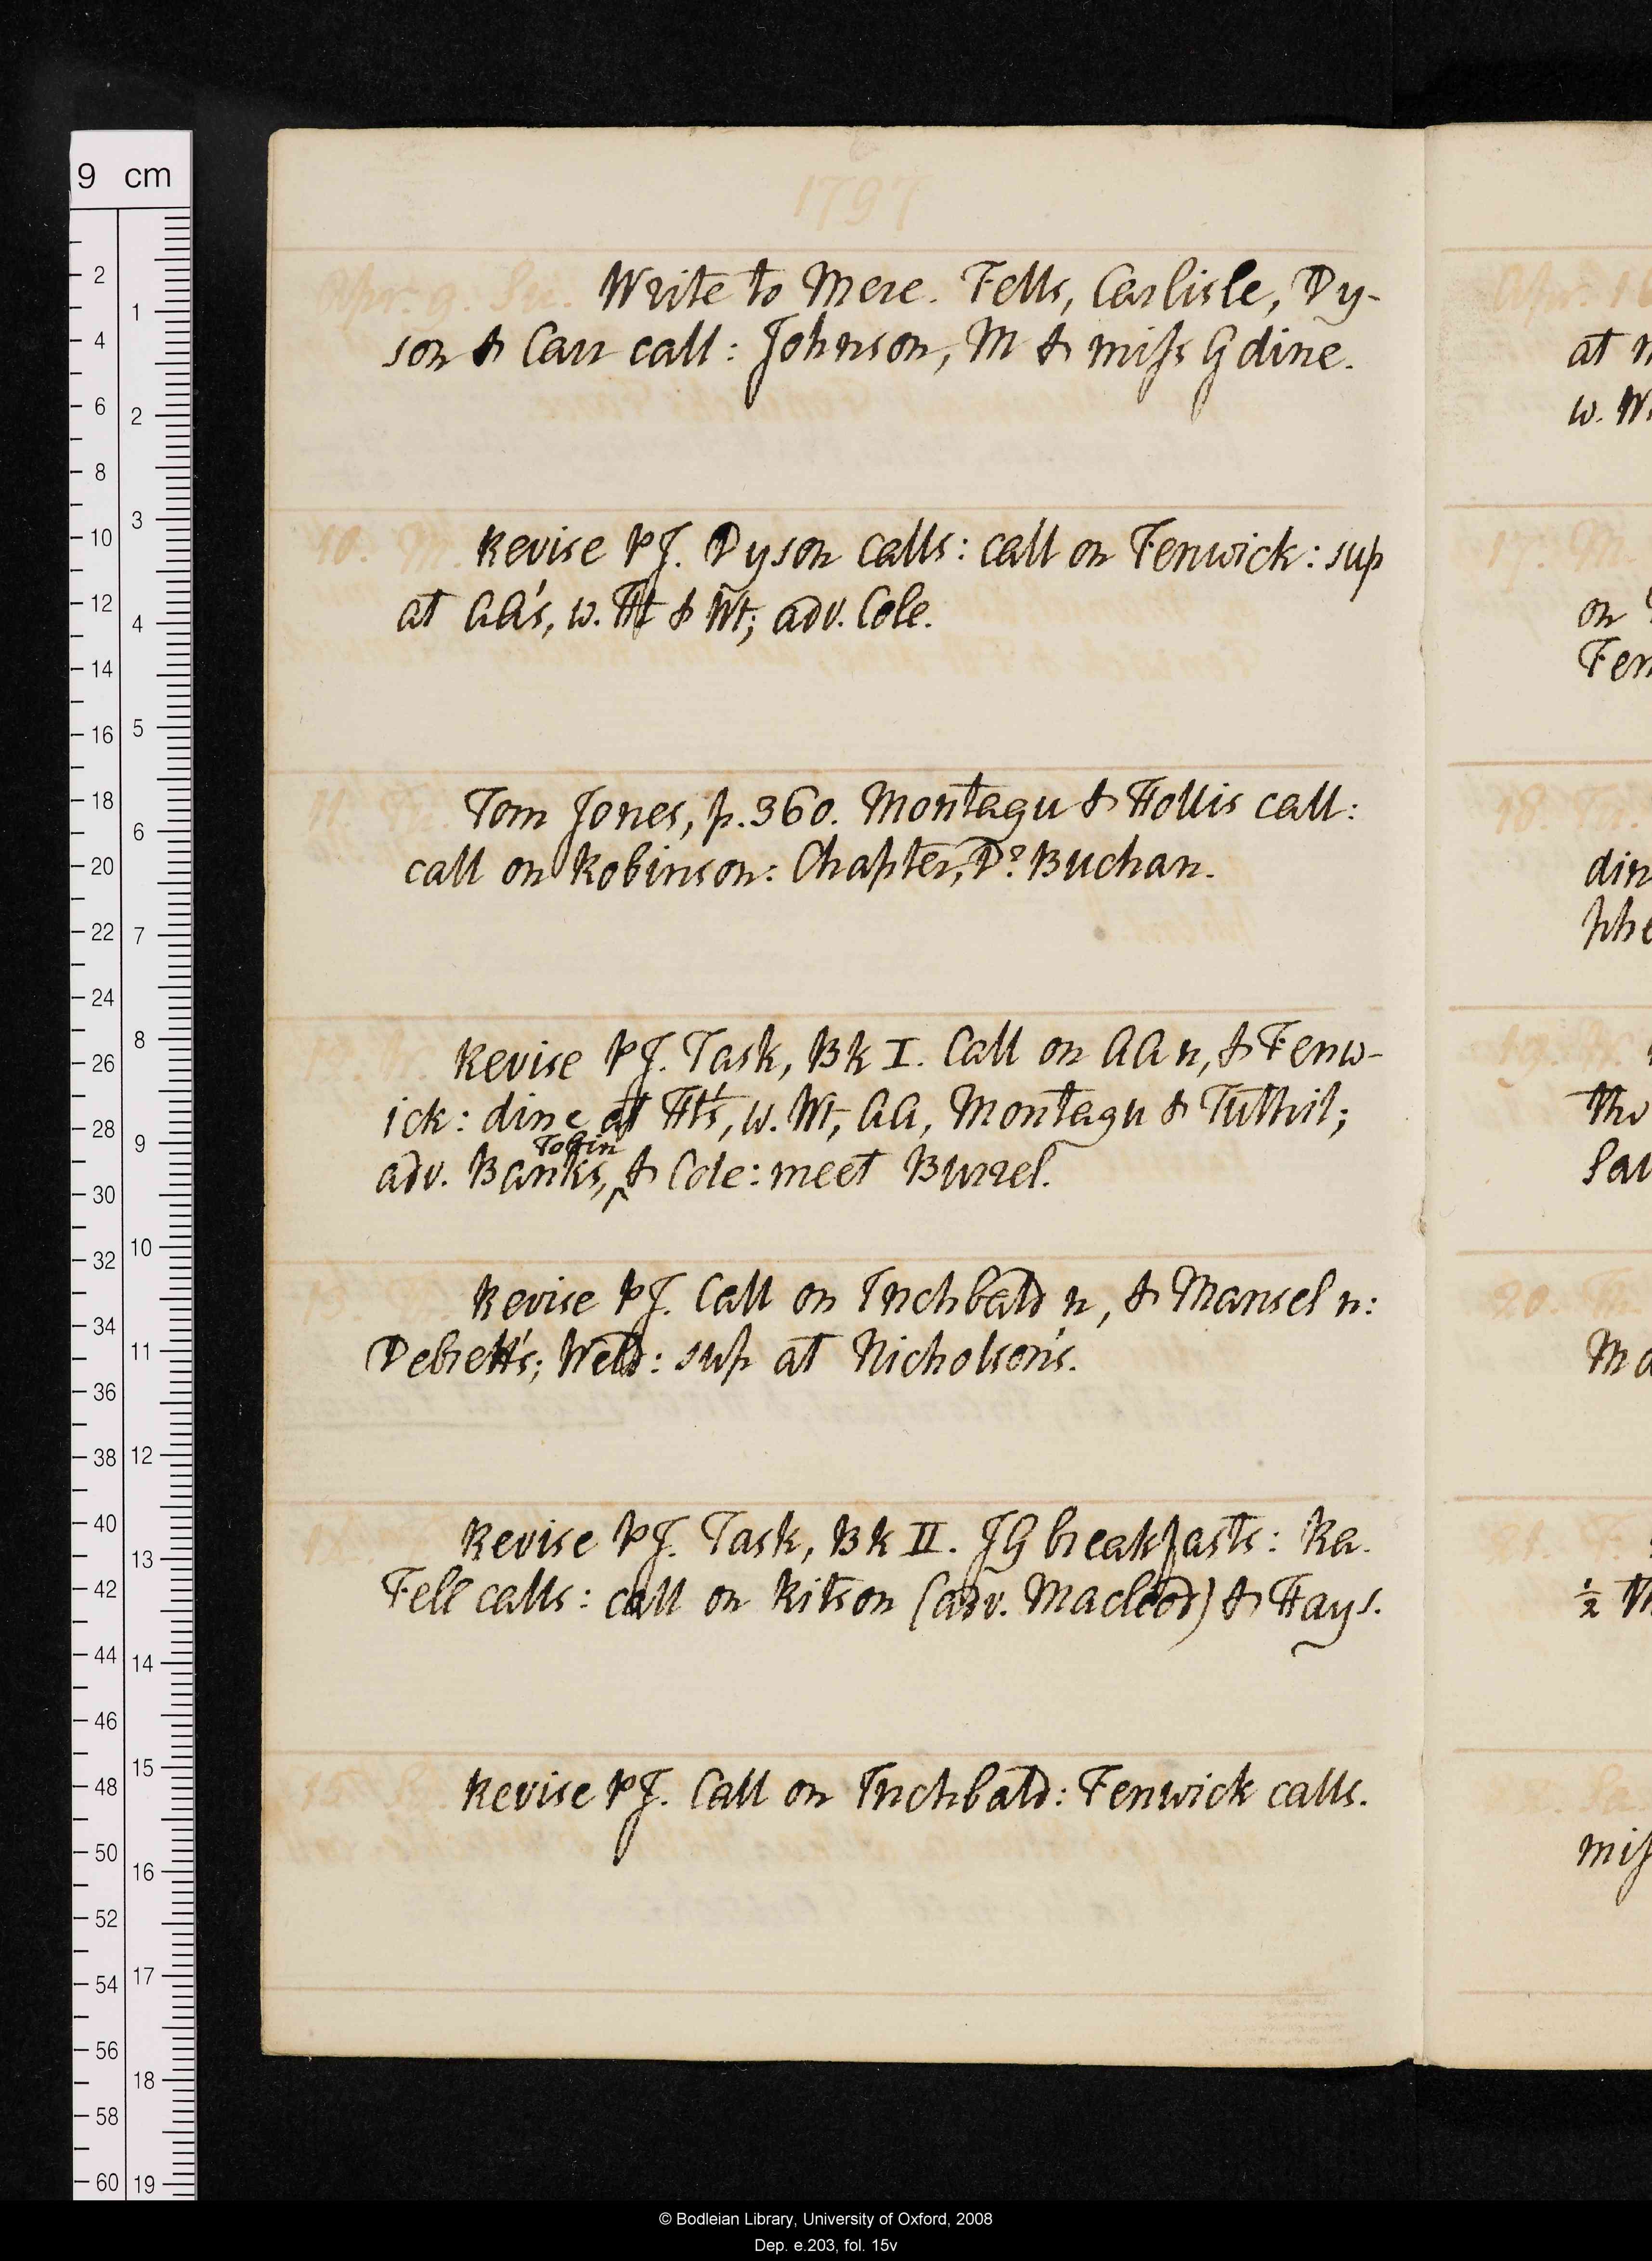 1797
Apr. 9. Su. Write to Mere. Fells, Carlisle, Dy-
son & Carr call: Johnson, M & miss G dine.
10. M. Revise PJ. Dyson calls: call on Fenwick: sup
at AA's, w. Ht & Wt; adv. Cole.
11. Tom Jones, p. 360. Montagu & Hollis call:
call on Robinson: Chapter, Dr. Buchan.
Revise PJ. Task, Bk I. Call on AA n, & Fenw-
ick: dine at Ht's, w. Wt, AA, Montagu & Tuthil;
Tobin
adv. Banks, ^ & Cole: meet Burrel.
13. Revise PJ. Call on Inchbald n, & Mansel n:
Debrett's; Weld: sup at Nicholson's.
Revise PJ. Task, Bk II. JG breakfasts: Ra.
Fell calls: call on Ritson (adv. Macleod) & Hays.
15. Revise PJ. Call on Inchbald: Fenwick calls.
at
w.
17. M.
on
Fen
18.
din
phe
19.
Sau
20.
Ma
21. F.
½
Sa.
miss
9 cm
2
4
6
8
10
12
14
16
18
20
22
24
26
28
30
32
34
36
38
40
42
44
46
48
50
52
54
56
58
60
1
2
3
4
5
6
7
8
9
10
11
12
13
14
15
16
17
18
19
© Bodleian Library, University of Oxford, 2008
Dep. e.203, fol. 15v